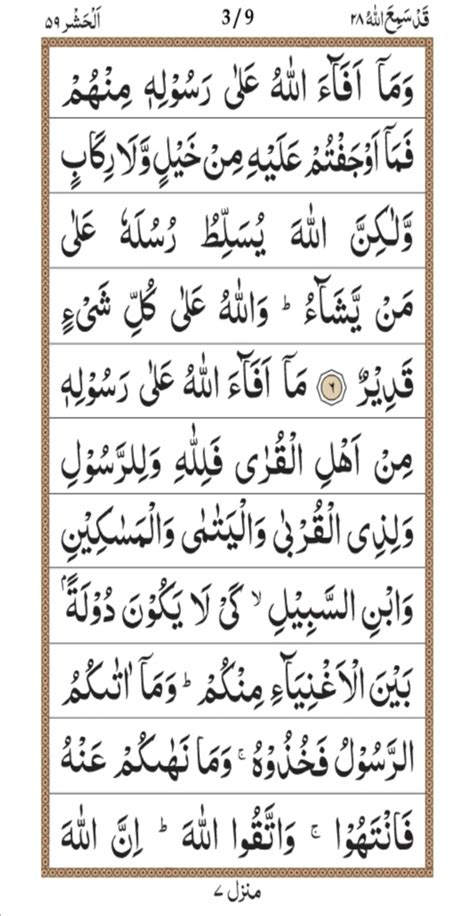 قَدْ سَمِعَ اللّٰهُ ۲۸ 3/9 اَلْحَشْر ۵۹
وَمَاۤ اَفَآءَ اللّٰهُ عَلٰى رَسُوْلِهٖ مِنْهُمْ
فَمَاۤ اَوْجَفْتُمْ عَلَيْهِ مِنْ خَيْلٍ وَّلَا رِكَابٍ
وَّلٰكِنَّ اللّٰهَ يُسَلِّطُ رُسُلَهٗ عَلٰى
مَنْ يَّشَآءُ ؕ وَاللّٰهُ عَلٰى كُلِّ شَىْءٍ
قَدِيْرٌ ۶ مَاۤ اَفَآءَ اللّٰهُ عَلٰى رَسُوْلِهٖ
مِنْ اَهْلِ الْقُرٰى فَلِلّٰهِ وَلِلرَّسُوْلِ
وَلِذِى الْقُرْبٰى وَالْيَتٰمٰى وَالْمَسٰكِيْنِ
وَابْنِ السَّبِيْلِ ۙ كَىْ لَا يَكُوْنَ دُوْلَةًۢ
بَيْنَ الْاَغْنِيَآءِ مِنْكُمْ ؕ وَمَاۤ اٰتٰىكُمُ
الرَّسُوْلُ فَخُذُوْهُ ۚ وَمَا نَهٰىكُمْ عَنْهُ
فَانْتَهُوْا ۚ وَاتَّقُوا اللّٰهَ ؕ اِنَّ اللّٰهَ
منزل ۷